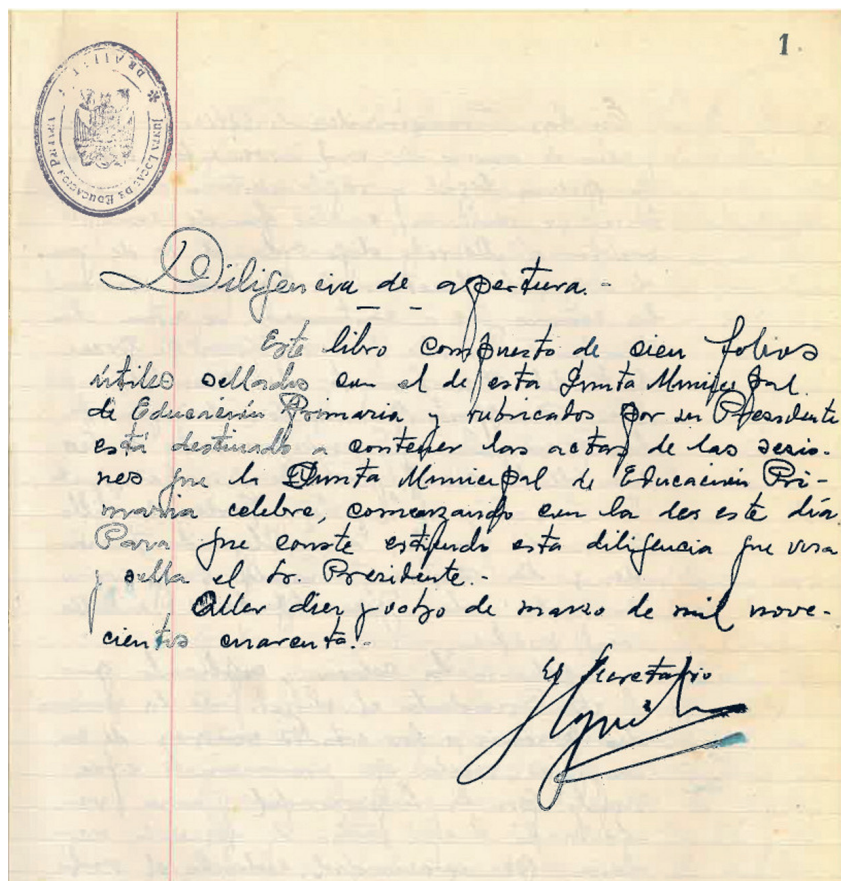 1.
JUNTA LOCAL DE EDUCACION PRIMARIA
Diligencia de apertura.-
Este libro compuesto de cien folios
útiles sellados con el de esta Junta Municipal
de Educación Primaria y rubricados por su Presidente
está destinado a contener las actas de las sesio-
nes que la Junta Municipal de Educación Pri-
maria celebre, comenzando con la de este día.
Para que conste extiendo esta diligencia que visa
y sella el Sr. Presidente.-
Aller diez y ocho de marzo de mil nove-
cientos cuarenta.-
El Secretario